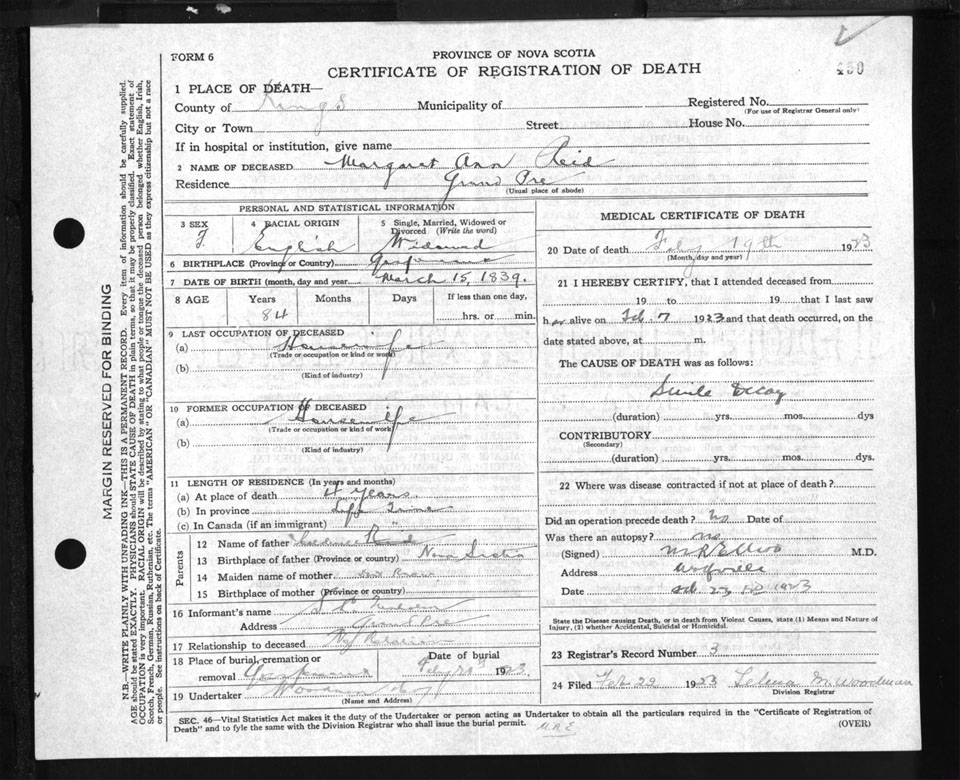 FORM 6
PROVINCE OF NOVA SCOTIA
CERTIFICATE OF REGISTRATION OF DEATH
450
1 PLACE OF DEATH—
County of Kings Municipality of Registered No.
(For use of Registrar General only)
City or Town Street House No.
If in hospital or institution, give name
2 NAME OF DECEASED Margaret Ann Reid
Residence Grand Pre
(Usual place of abode)
PERSONAL AND STATISTICAL INFORMATION
3 SEX F
4 RACIAL ORIGIN English
5 Single, Married, Widowed or Divorced (Write the word) Widowed
6 BIRTHPLACE (Province or Country) Gaspereau
7 DATE OF BIRTH (month, day and year) March 15, 1839.
8 AGE Years Months Days If less than one day,
84 hrs. or min.
9 LAST OCCUPATION OF DECEASED
(a) Housewife
(Trade or occupation or kind or work)
(b)
(Kind of industry)
10 FORMER OCCUPATION OF DECEASED
(a) Housewife
(Trade or occupation or kind of work)
(b)
(Kind of industry)
11 LENGTH OF RESIDENCE (In years and months)
(a) At place of death 4 Years
(b) In province Life Time
(c) In Canada (if an immigrant) "
Parents
12 Name of father
13 Birthplace of father (Province or country) Nova Scotia
14 Maiden name of mother
15 Birthplace of mother (Province or country)
16 Informant's name
Address Grand Pre
17 Relationship to deceased No Relation
18 Place of burial, cremation or removal Gaspereau Date of burial Feby 21st 1923.
19 Undertaker Woodman
(Name and Address)
MEDICAL CERTIFICATE OF DEATH
20 Date of death Feby 19th 1923
(Month, day and year)
21 I HEREBY CERTIFY, that I attended deceased from
19 to 19 that I last saw
her alive on Feb. 7 1923 and that death occurred, on the
date stated above, at m.
The CAUSE OF DEATH was as follows:
Senile Decay
(duration) yrs. mos. dys
CONTRIBUTORY
(Secondary)
(duration) yrs. mos. dys.
22 Where was disease contracted if not at place of death?
Did an operation precede death? No Date of
Was there an autopsy? no
(Signed) M R Elliott M.D.
Address Wolfville
Date Feb 23 1923
State the Disease causing Death, or in death from Violent Causes, state (1) Means and Nature of
Injury, (2) whether Accidental, Suicidal or Homicidal.
23 Registrar's Record Number 3
24 Filed Feb 22 1923 Selena M. Woodman
Division Registrar
SEC. 46—Vital Statistics Act makes it the duty of the Undertaker or person acting as Undertaker to obtain all the particulars required in the "Certificate of Registration of
Death" and to fyle the same with the Division Registrar who shall issue the burial permit. M.R.E
(OVER)
MARGIN RESERVED FOR BINDING
N.B.—WRITE PLAINLY WITH UNFADING INK—THIS IS A PERMANENT RECORD. Every item of information should be carefully supplied.
AGE should be stated EXACTLY. PHYSICIANS should STATE CAUSE OF DEATH in plain terms, so that it may be properly classified. Exact statement of
OCCUPATION is very important. RACIAL ORIGIN will be described by stating to what people or tongue the deceased person belonged whether English, Irish,
Scotch, French, German, Russian, Ruthenian, etc. The terms "AMERICAN" OR "CANADIAN" MUST NOT BE USED as they express citizenship but not a race
or people. See instructions on back of Certificate.